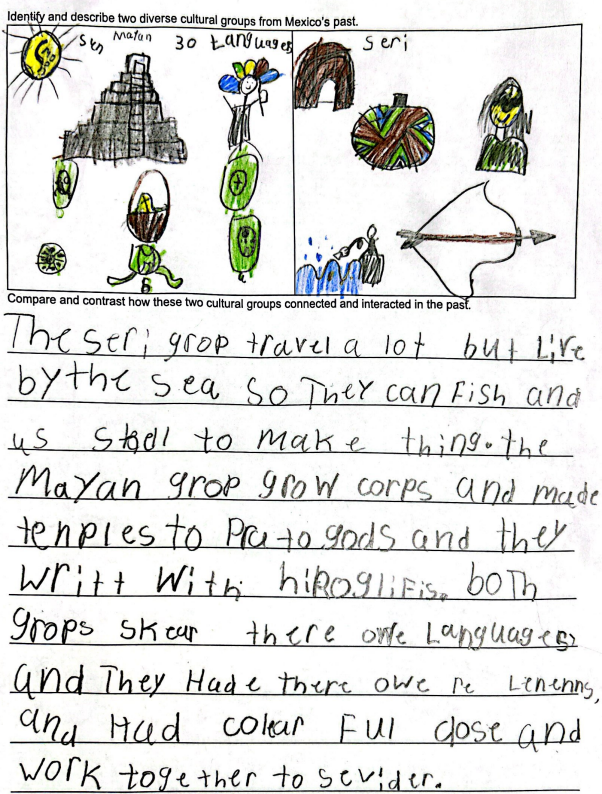 Identify and describe two diverse cultural groups from Mexico's past.
Mayan 30 Languages
Seri
Compare and contrast how these two cultural groups connected and interacted in the past.
The seri grop travel a lot but Live
by the sea so They can Fish and
us to make thing. the
Mayan grop grow corps and made
tenples to Pra to gods and they
writt with hiroglifis. both
grops skear there owe Languages
and They Had e there owe re Lenenns,
and Had colear FUl close and
work together to sevider.